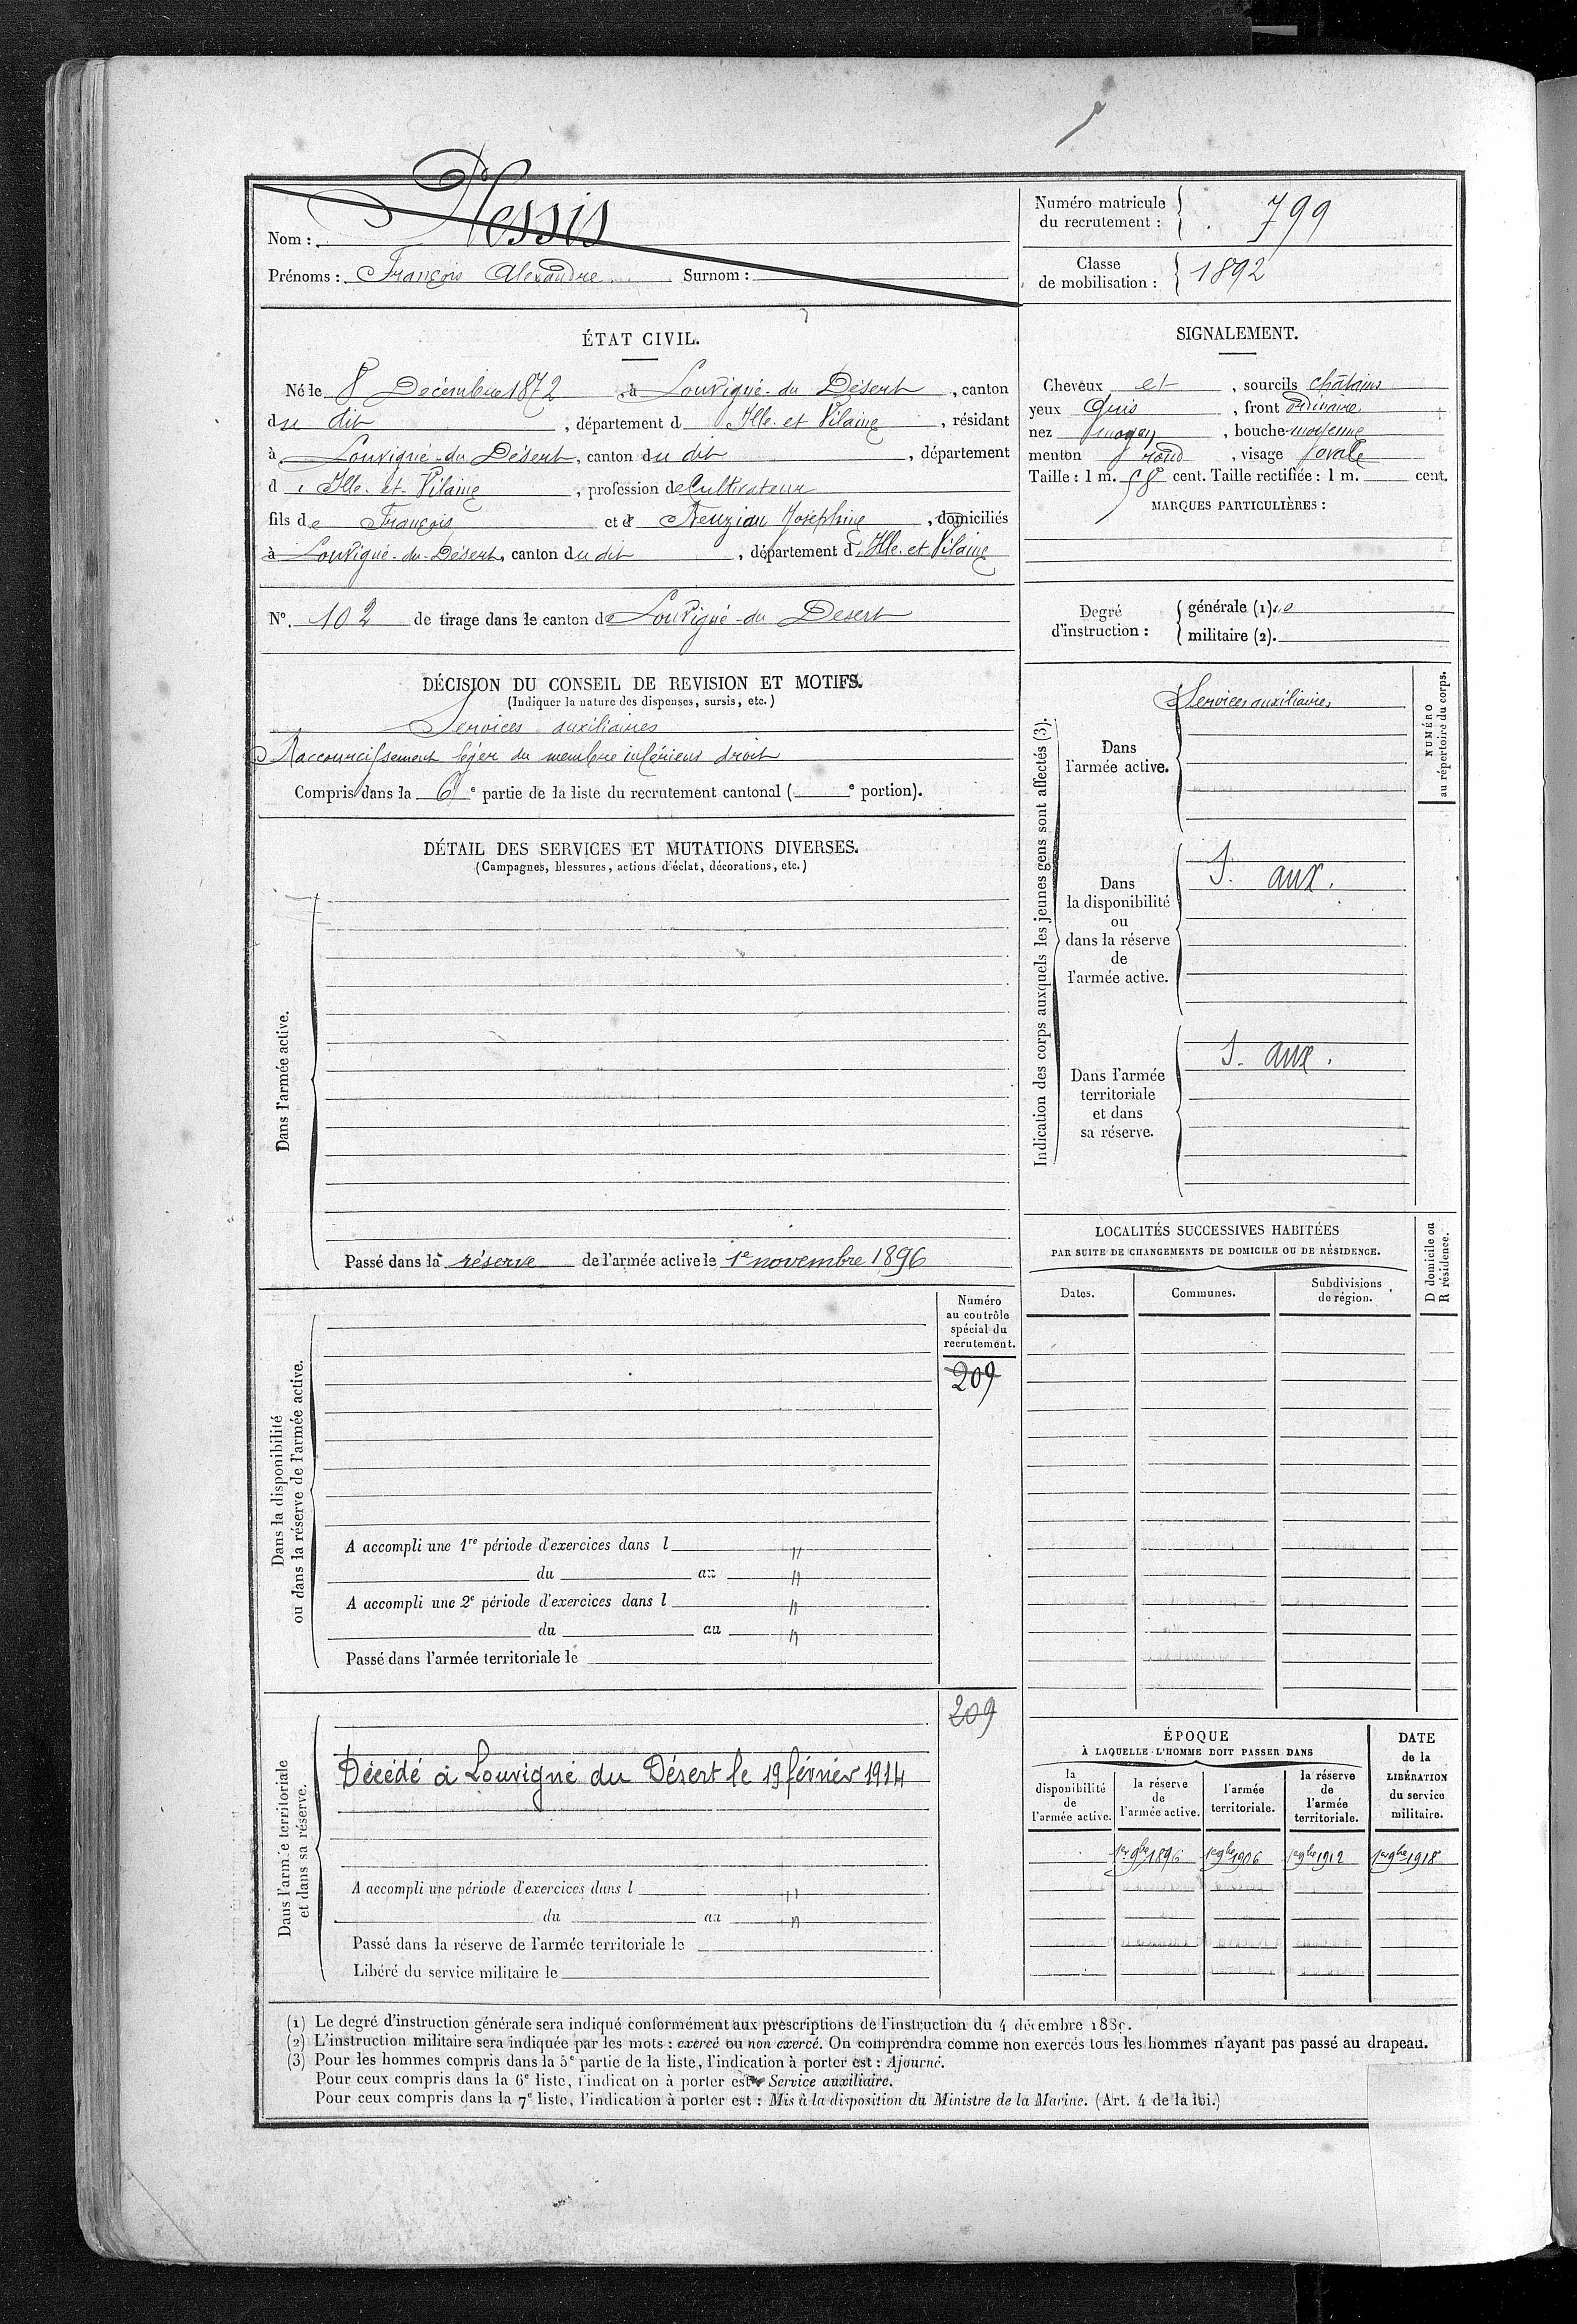 Nom : Plessis
Prénoms : François Alexandre Surnom :
Numéro matricule du recrutement : 799
Classe de mobilisation : 1892
ÉTAT CIVIL.
Né le 8 Décembre 1872 à Louvigné-du Désert, canton
du dit, département d Ille-et Vilaine, résidant
à Louvigné-du Désert, canton du dit, département
d Ille-et-Vilaine, profession de Cultivateur
fils de François et d Josephine, domiciliés
à Louvigné-du-Désert, canton du dit, département d Ille-et Vilaine
No. 102 de tirage dans le canton de Louvigné-du Désert
SIGNALEMENT.
Cheveux et, sourcils châtains
yeux Gris, front ordinaire
nez moyen, bouche moyenne
menton rond, visage ovale
Taille : 1 m. 58 cent. Taille rectifiée : 1 m. cent.
MARQUES PARTICULIÈRES :
Degré d'instruction :
générale (1).
militaire (2).
DÉCISION DU CONSEIL DE REVISION ET MOTIFS.
(Indiquer la nature des dispenses, sursis, etc.)
Services auxiliaires
Raccourcissement léger du membre inférieur droit
Compris dans la 6e partie de la liste du recrutement cantonal ( e portion).
DÉTAIL DES SERVICES ET MUTATIONS DIVERSES.
(Campagnes, blessures, actions d'éclat, décorations, etc.)
Dans l'armée active.
Passé dans la réserve de l'armée active le 1e novembre 1896
Indication des corps auxquels les jeunes gens sont affectés (3).
NUMÉRO
au répertoire du corps.
Dans
l'armée active.
Services auxiliaires
Dans
la disponibilité
ou
dans la réserve
de
l'armée active.
S. aux.
Dans l'armée
territoriale
et dans
sa réserve.
S. aux.
LOCALITÉS SUCCESSIVES HABITÉES
PAR SUITE DE CHANGEMENTS DE DOMICILE OU DE RÉSIDENCE.
D domicile ou
R résidence.
Dates.
Communes.
Subdivisions
de région.
Dans la disponibilité
ou dans la réserve de l'armée active.
Numéro
au contrôle
spécial du
recrutement.
209
A accompli une 1re période d'exercices dans l "
du au "
A accompli une 2e période d'exercices dans l "
du au "
Passé dans l'armée territoriale le
Dans l'armée territoriale
et dans sa réserve.
209
Décédé à Louvigné du Désert le 19 février 1914
A accompli une période d'exercices dans l "
du au "
Passé dans la réserve de l'armée territoriale le
Libéré du service militaire le
ÉPOQUE
À LAQUELLE L'HOMME DOIT PASSER DANS
la
disponibilité
de
l'armée active.
la réserve
de
l'armée active.
l'armée
territoriale.
la réserve
de
l'armée
territoriale.
DATE
de la
LIBÉRATION
du service
militaire.
1er 9bre 1896 1er 9bre 1906 1er 9bre 1912 1er 9bre 1918
(1) Le degré d'instruction générale sera indiqué conformément aux prescriptions de l'instruction du 4 décembre 1889.
(2) L'instruction militaire sera indiquée par les mots : exercé ou non exercé. On comprendra comme non exercés tous les hommes n'ayant pas passé au drapeau.
(3) Pour les hommes compris dans la 5e partie de la liste, l'indication à porter est : Ajourné.
Pour ceux compris dans la 6e liste, l'indication à porter est : Service auxiliaire.
Pour ceux compris dans la 7e liste, l'indication à porter est : Mis à la disposition du Ministre de la Marine. (Art. 4 de la loi.)